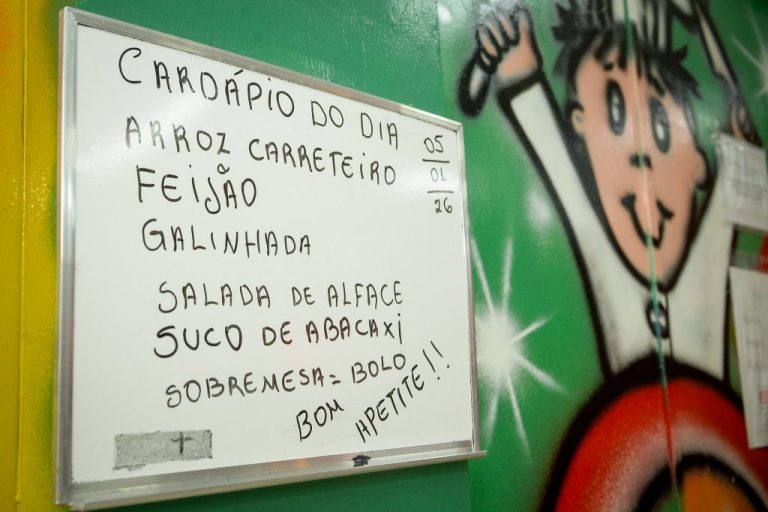 CARDÁPIO DO DIA
ARROZ CARRETEIRO
05
01
26
FEIJÃO
GALINHADA
SALADA DE ALFACE
SUCO DE ABACAXI
SOBREMESA= BOLO
BOM APETITE!!